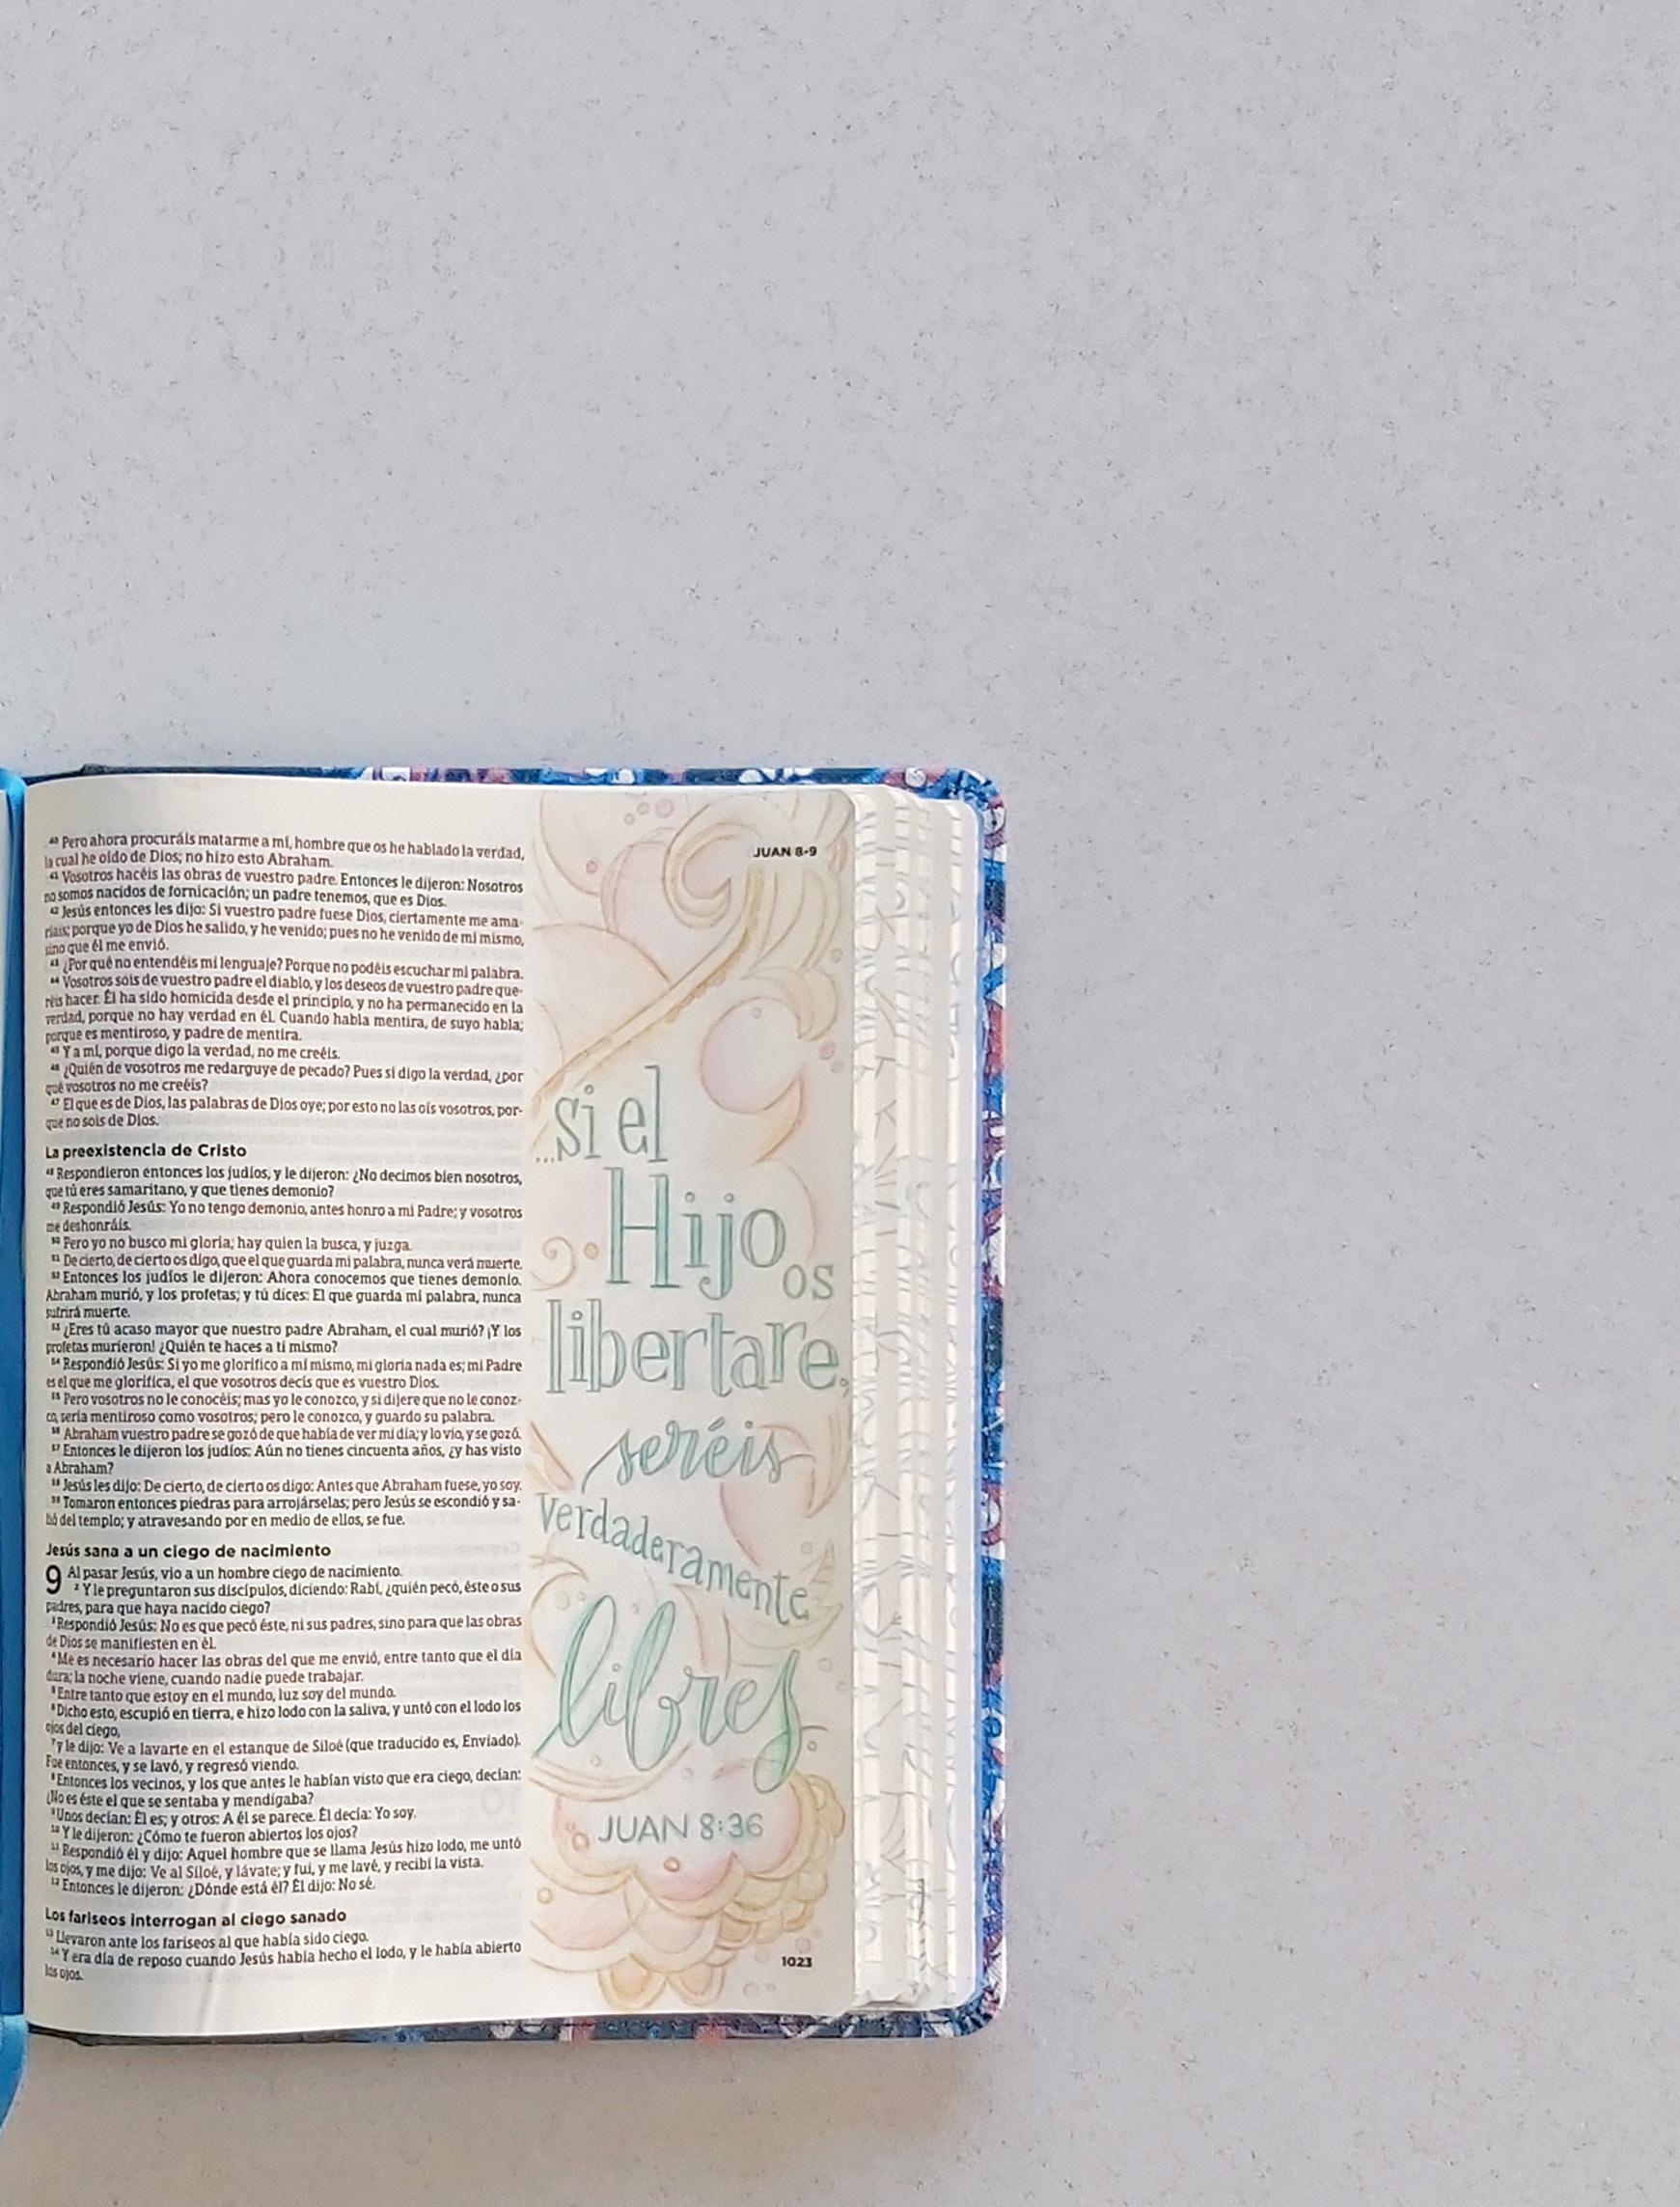 ⁴⁰ Pero ahora procuráis matarme a mí, hombre que os he hablado la verdad,
la cual he oído de Dios; no hizo esto Abraham.
⁴¹ Vosotros hacéis las obras de vuestro padre. Entonces le dijeron: Nosotros
no somos nacidos de fornicación; un padre tenemos, que es Dios.
⁴² Jesús entonces les dijo: Si vuestro padre fuese Dios, ciertamente me ama-
ríais; porque yo de Dios he salido, y he venido; pues no he venido de mí mismo,
sino que él me envió.
⁴³ ¿Por qué no entendéis mi lenguaje? Porque no podéis escuchar mi palabra.
⁴⁴ Vosotros sois de vuestro padre el diablo, y los deseos de vuestro padre que-
réis hacer. Él ha sido homicida desde el principio, y no ha permanecido en la
verdad, porque no hay verdad en él. Cuando habla mentira, de suyo habla;
porque es mentiroso, y padre de mentira.
⁴⁵ Y a mí, porque digo la verdad, no me creéis.
⁴⁶ ¿Quién de vosotros me redarguye de pecado? Pues si digo la verdad, ¿por
qué vosotros no me creéis?
⁴⁷ El que es de Dios, las palabras de Dios oye; por esto no las oís vosotros, por-
que no sois de Dios.
La preexistencia de Cristo
⁴⁸ Respondieron entonces los judíos, y le dijeron: ¿No decimos bien nosotros,
que tú eres samaritano, y que tienes demonio?
⁴⁹ Respondió Jesús: Yo no tengo demonio, antes honro a mi Padre; y vosotros
me deshonráis.
⁵⁰ Pero yo no busco mi gloria; hay quien la busca, y juzga.
⁵¹ De cierto, de cierto os digo, que el que guarda mi palabra, nunca verá muerte.
⁵² Entonces los judíos le dijeron: Ahora conocemos que tienes demonio.
Abraham murió, y los profetas; y tú dices: El que guarda mi palabra, nunca
sufrirá muerte.
⁵³ ¿Eres tú acaso mayor que nuestro padre Abraham, el cual murió? ¡Y los
profetas murieron! ¿Quién te haces a ti mismo?
⁵⁴ Respondió Jesús: Si yo me glorifico a mí mismo, mi gloria nada es; mi Padre
es el que me glorifica, el que vosotros decís que es vuestro Dios.
⁵⁵ Pero vosotros no le conocéis; mas yo le conozco, y si dijere que no le conoz-
co, sería mentiroso como vosotros; pero le conozco, y guardo su palabra.
⁵⁶ Abraham vuestro padre se gozó de que había de ver mi día; y lo vio, y se gozó.
⁵⁷ Entonces le dijeron los judíos: Aún no tienes cincuenta años, ¿y has visto
a Abraham?
⁵⁸ Jesús les dijo: De cierto, de cierto os digo: Antes que Abraham fuese, yo soy.
⁵⁹ Tomaron entonces piedras para arrojárselas; pero Jesús se escondió y sa-
lió del templo; y atravesando por en medio de ellos, se fue.
Jesús sana a un ciego de nacimiento
9 Al pasar Jesús, vio a un hombre ciego de nacimiento.
² Y le preguntaron sus discípulos, diciendo: Rabí, ¿quién pecó, éste o sus
padres, para que haya nacido ciego?
³ Respondió Jesús: No es que pecó éste, ni sus padres, sino para que las obras
de Dios se manifiesten en él.
⁴ Me es necesario hacer las obras del que me envió, entre tanto que el día
dura; la noche viene, cuando nadie puede trabajar.
⁵ Entre tanto que estoy en el mundo, luz soy del mundo.
⁶ Dicho esto, escupió en tierra, e hizo lodo con la saliva, y untó con el lodo los
ojos del ciego,
⁷ y le dijo: Ve a lavarte en el estanque de Siloé (que traducido es, Enviado).
Fue entonces, y se lavó, y regresó viendo.
⁸ Entonces los vecinos, y los que antes le habían visto que era ciego, decían:
¿No es éste el que se sentaba y mendigaba?
⁹ Unos decían: Él es; y otros: A él se parece. Él decía: Yo soy.
¹⁰ Y le dijeron: ¿Cómo te fueron abiertos los ojos?
¹¹ Respondió él y dijo: Aquel hombre que se llama Jesús hizo lodo, me untó
los ojos, y me dijo: Ve al Siloé, y lávate; y fui, y me lavé, y recibí la vista.
¹² Entonces le dijeron: ¿Dónde está él? Él dijo: No sé.
Los fariseos interrogan al ciego sanado
¹³ Llevaron ante los fariseos al que había sido ciego.
¹⁴ Y era día de reposo cuando Jesús había hecho el lodo, y le había abierto
los ojos.
JUAN 8-9
...si el
Hijo
os
libertare,
seréis
verdaderamente
libres
JUAN 8:36
1023